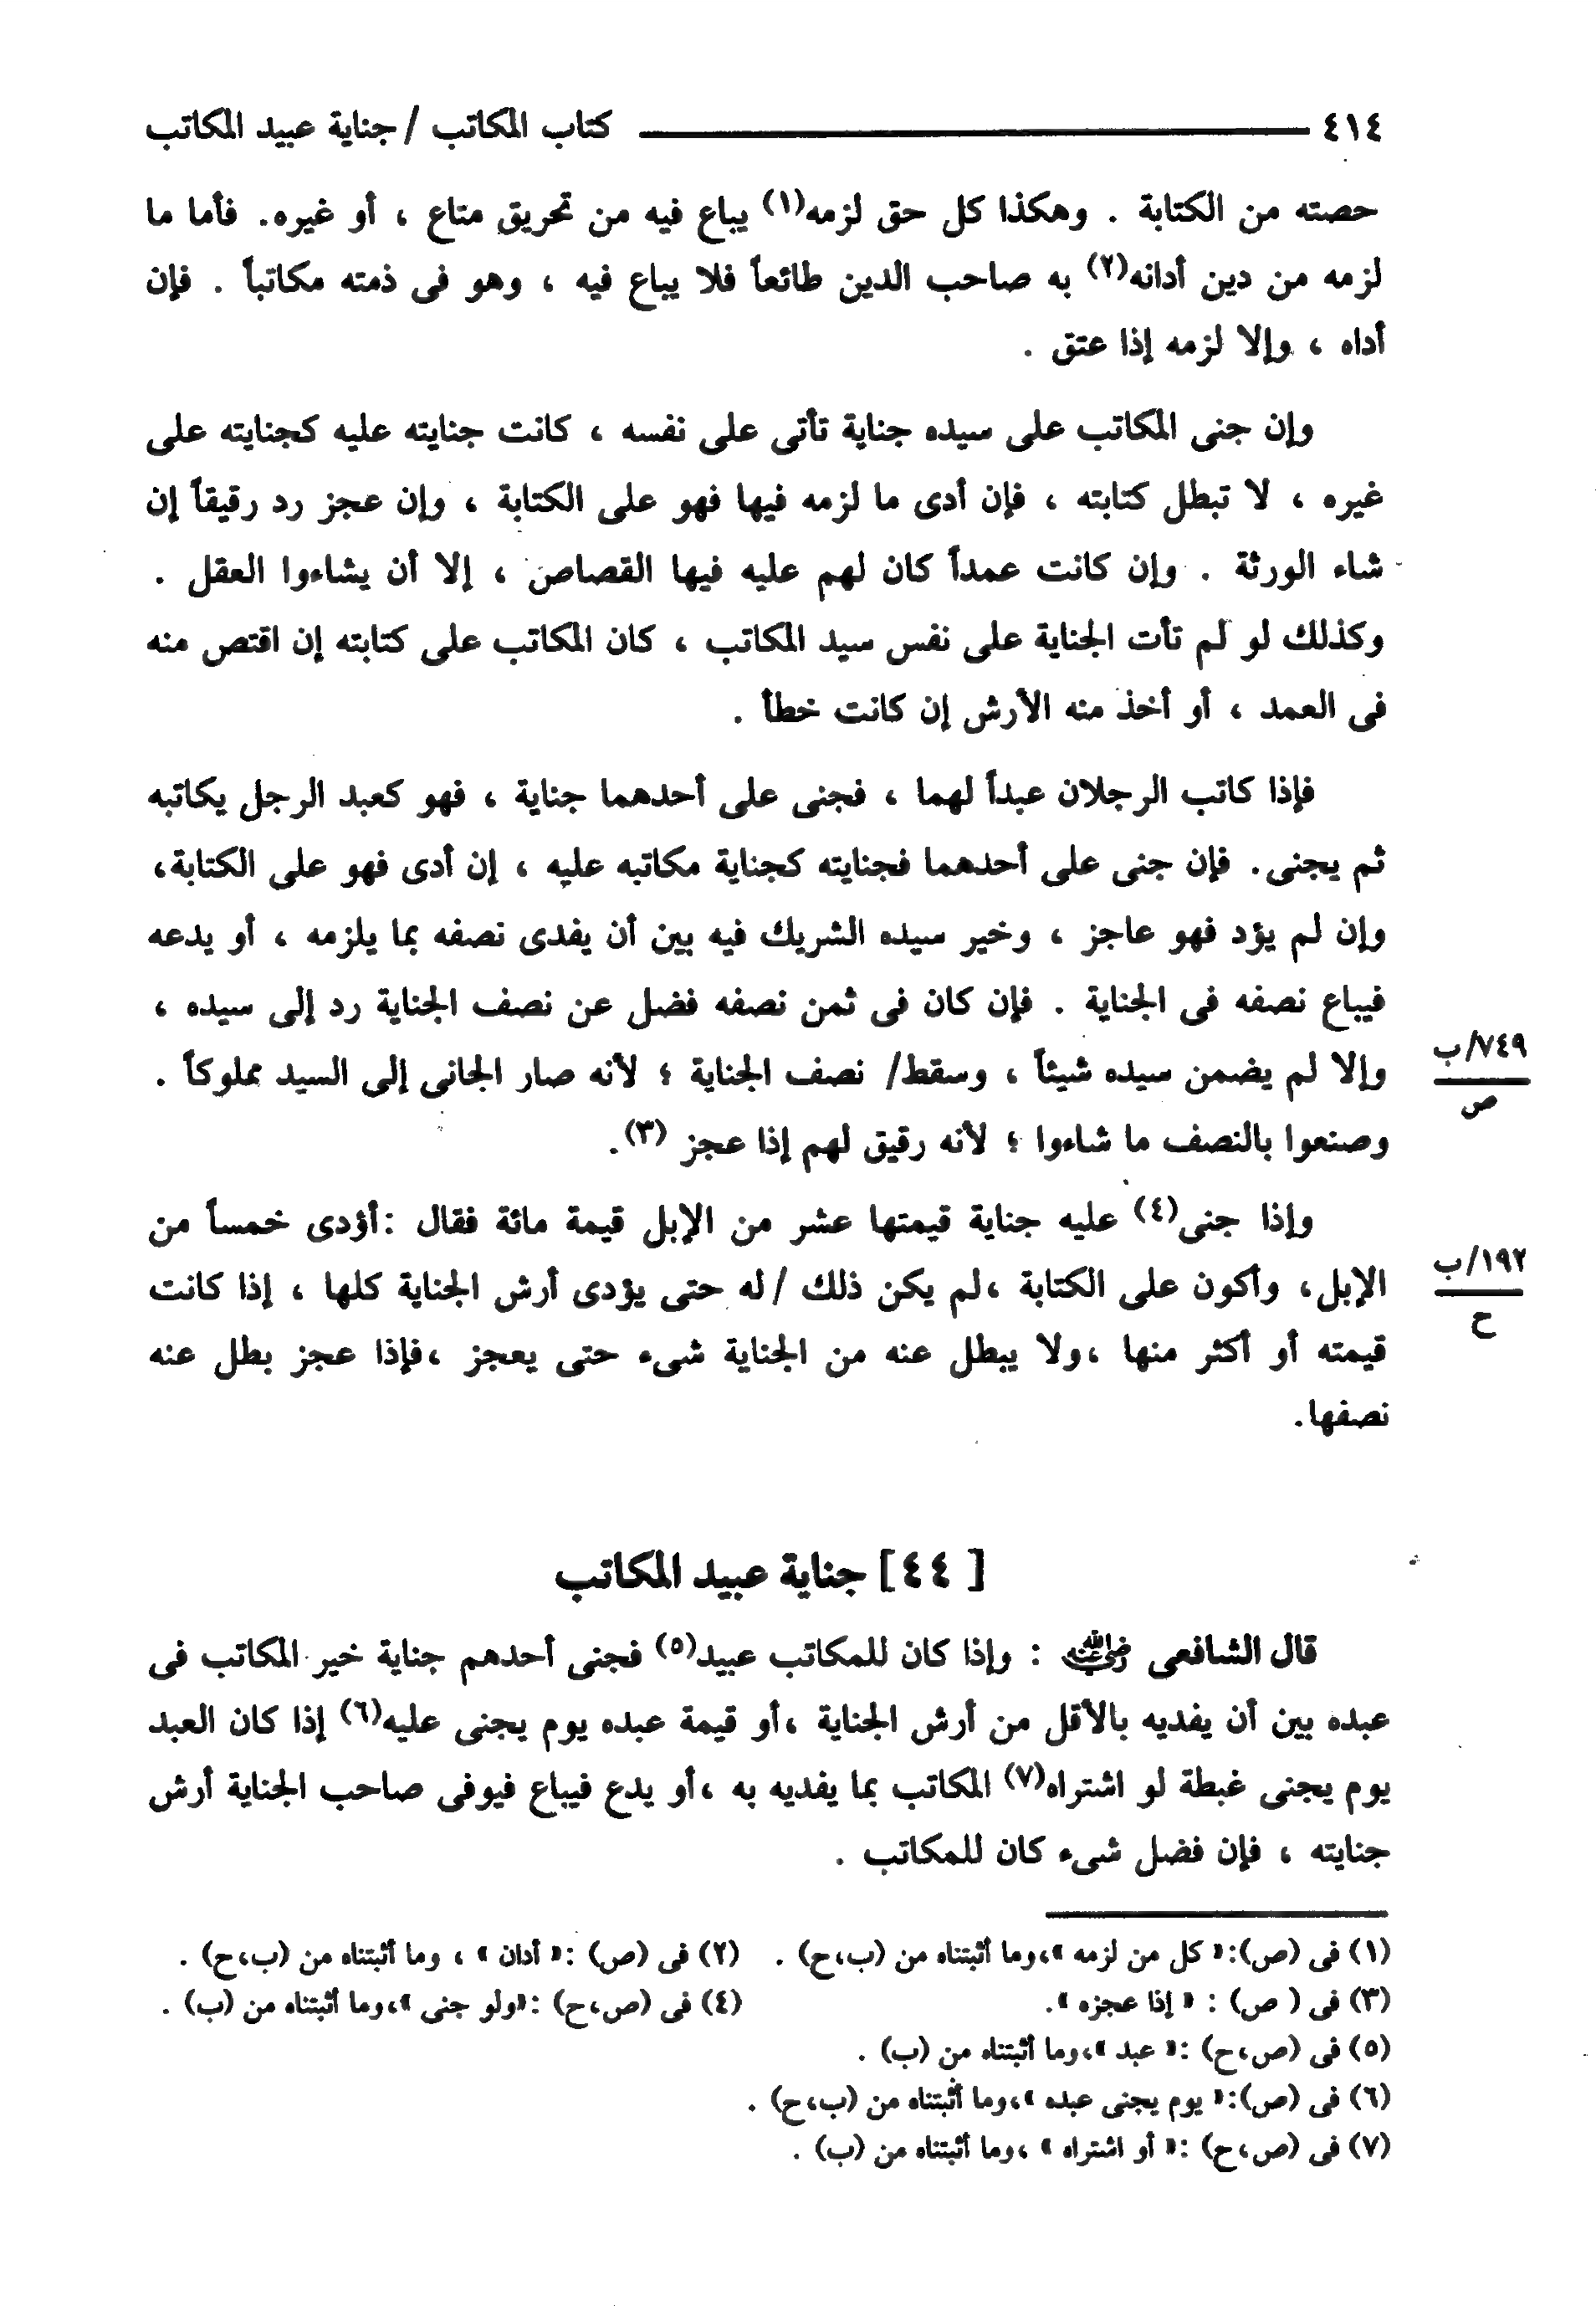 ٤١٤ كتاب المكاتب / جناية عبيد المكاتب
حصته من الكتابة . وهكذا كل حق لزمه(١) يباع فيه من تحريق متاع ، أو غيره. فأما ما
لزمه من دين أدانه(٢) به صاحب الدين طائعاً فلا يباع فيه ، وهو فى ذمته مكاتباً . فإن
أداه ، وإلا لزمه إذا عتق .
وإن جنى المكاتب على سيده جناية تأتى على نفسه ، كانت جنايته عليه كجنايته على
غيره ، لا تبطل كتابته ، فإن أدى ما لزمه فيها فهو على الكتابة ، وإن عجز رد رقيقاً إن
شاء الورثة . وإن كانت عمداً كان لهم عليه فيها القصاص ، إلا أن يشاءوا العقل .
وكذلك لو لم تأت الجناية على نفس سيد المكاتب ، كان المكاتب على كتابته إن اقتص منه
فى العمد ، أو أخذ منه الأرش إن كانت خطأ .
فإذا كاتب الرجلان عبداً لهما ، فجنى على أحدهما جناية ، فهو كعبد الرجل يكاتبه
ثم يجنى. فإن جنى على أحدهما فجنايته كجناية مكاتبه عليه ، إن أدى فهو على الكتابة،
وإن لم يؤد فهو عاجز ، وخير سيده الشريك فيه بين أن يفدى نصفه بما يلزمه ، أو يدعه
فيباع نصفه فى الجناية . فإن كان فى ثمن نصفه فضل عن نصف الجناية رد إلى سيده ،
وإلا لم يضمن سيده شيئاً ، وسقط/ نصف الجناية ؛ لأنه صار الجانى إلى السيد مملوكاً .
٧٤٩/ب
ص
وصنعوا بالنصف ما شاءوا ؛ لأنه رقيق لهم إذا عجز (٣).
وإذا جنى(٤) عليه جناية قيمتها عشر من الإبل قيمة مائة فقال :أؤدى خمساً من
الإبل، وأكون على الكتابة ،لم يكن ذلك /له حتى يؤدى أرش الجناية كلها ، إذا كانت
١٩٢/ب
ح
قيمته أو أكثر منها ،ولا يبطل عنه من الجناية شىء حتى يعجز ،فإذا عجز بطل عنه
نصفها.
[ ٤٤] جناية عبيد المكاتب
قال الشافعى رضي الله عنه : وإذا كان للمكاتب عبيد(٥) فجنى أحدهم جناية خير المكاتب فى
عبده بين أن يفديه بالأقل من أرش الجناية ،أو قيمة عبده يوم يجنى عليه(٦) إذا كان العبد
يوم يجنى غبطة لو اشتراه(٧) المكاتب بما يفديه به ،أو يدع فيباع فيوفى صاحب الجناية أرش
جنايته ، فإن فضل شىء كان للمكاتب .
(١) فى (ص):« كل من لزمه »،وما أثبتناه من (ب،ح) . (٢) فى (ص) :« أدان » ، وما أثبتناه من (ب،ح) .
(٣) فى ( ص) : « إذا عجزه ». (٤) فى (ص،ح) :«ولو جنى »،وما أثبتناه من (ب) .
(٥) فى (ص،ح) :« عبد »،وما أثبتناه من (ب) .
(٦) فى (ص):« يوم يجنى عبده »،وما أثبتناه من (ب،ح) .
(٧) فى (ص،ح) :« أو اشتراه » ،وما أثبتناه من (ب) .